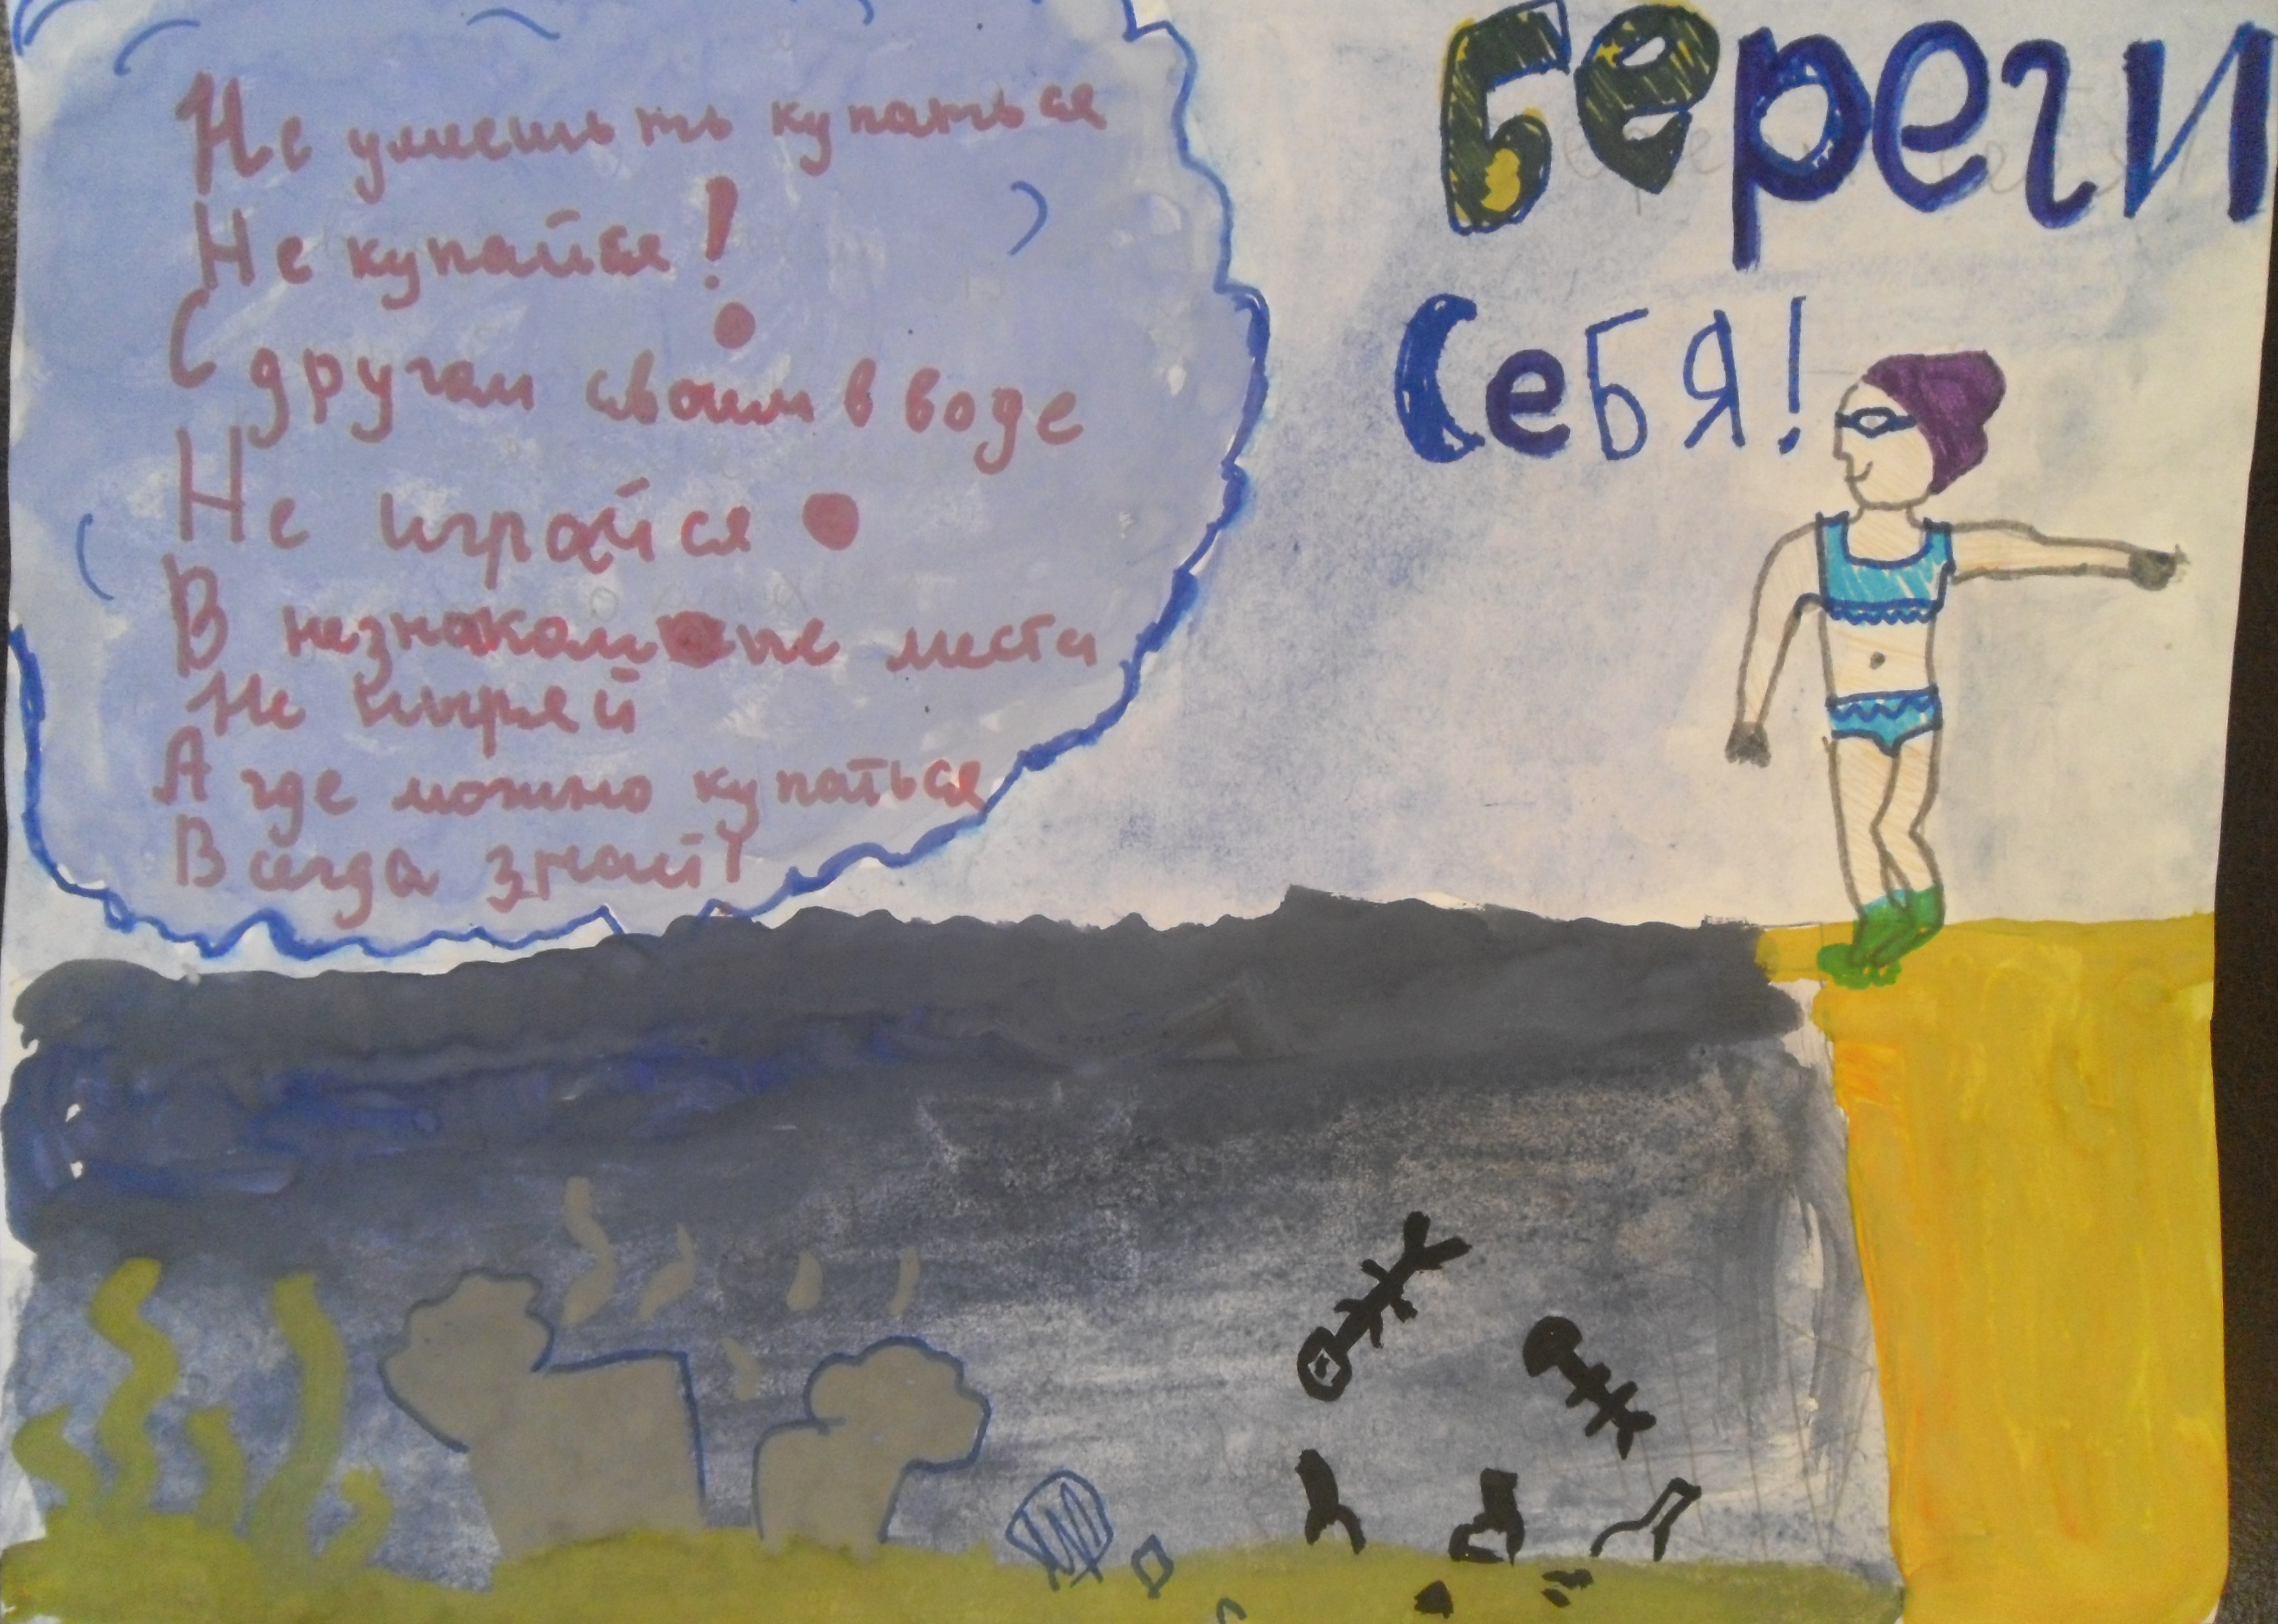 Не умеешь ть купаться
Не купайся!
С другом своим в воде
Не играйся
В незнакомые места
Не ныряй
А где можно купаться
Всегда знай!
Береги
Себя!